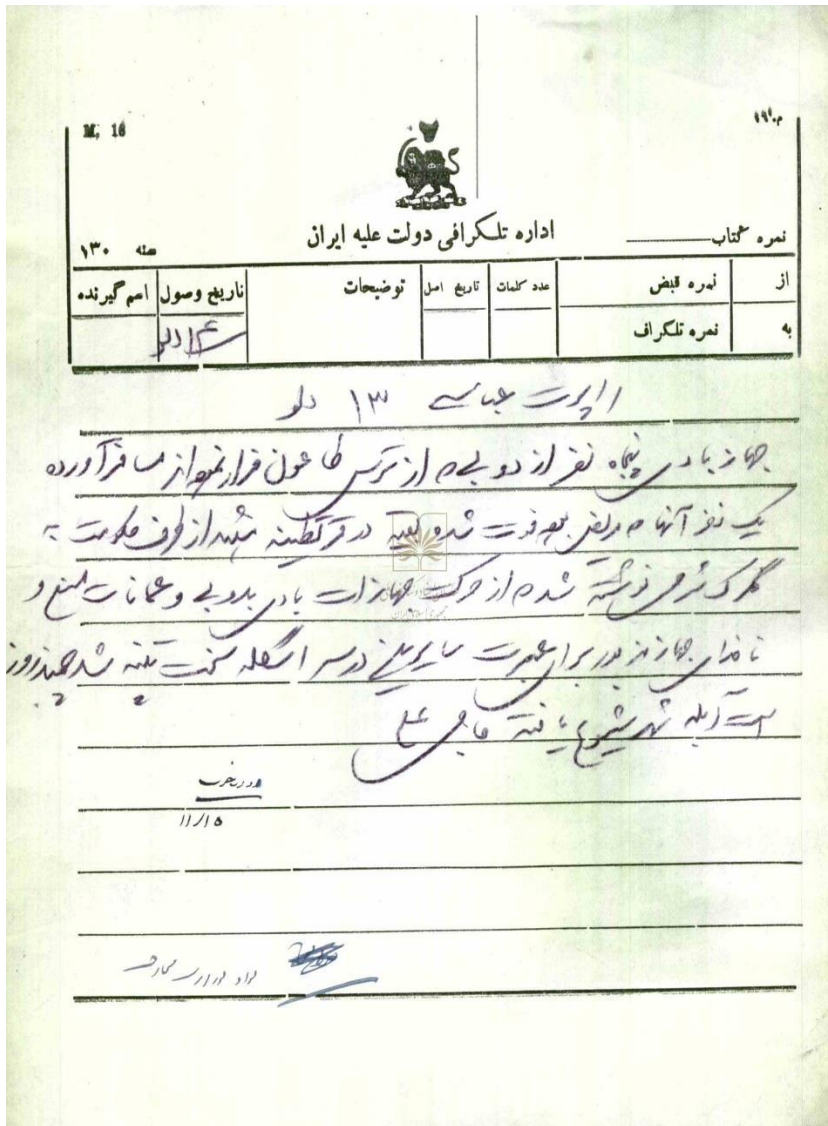 M, 16
اداره تلگرافی دولت علیه ایران
نمره کتاب
سنه ۱۳۰
از
نمره قبض
عدد کلمات
تاریخ اصل
توضیحات
تاریخ وصول
اسم گیرنده
به
نمره تلگراف
۱۴ دلو
راپورت عباسی ۱۳ دلو
جهاز بادی پنجاه نفر از دوبی که از ترس طاعون فرار نموده‌اند مسافر آورده
یک نفر آنها که مریض بوده فوت شده بقیه در قرنطینه میباشند از طرف حکومت به
گمرک شرحی نوشته شده از حرکت جهازات بادی بدوبی و عمانات ممنوع و
ناخدای جهاز مزبور برای عبرت سایرین در سر اسکله سخت تنبیه شد چند روز
است آبله شهر شیوع یافته حاجی علی
۱۱/۱۵
سواد وزارت معارف